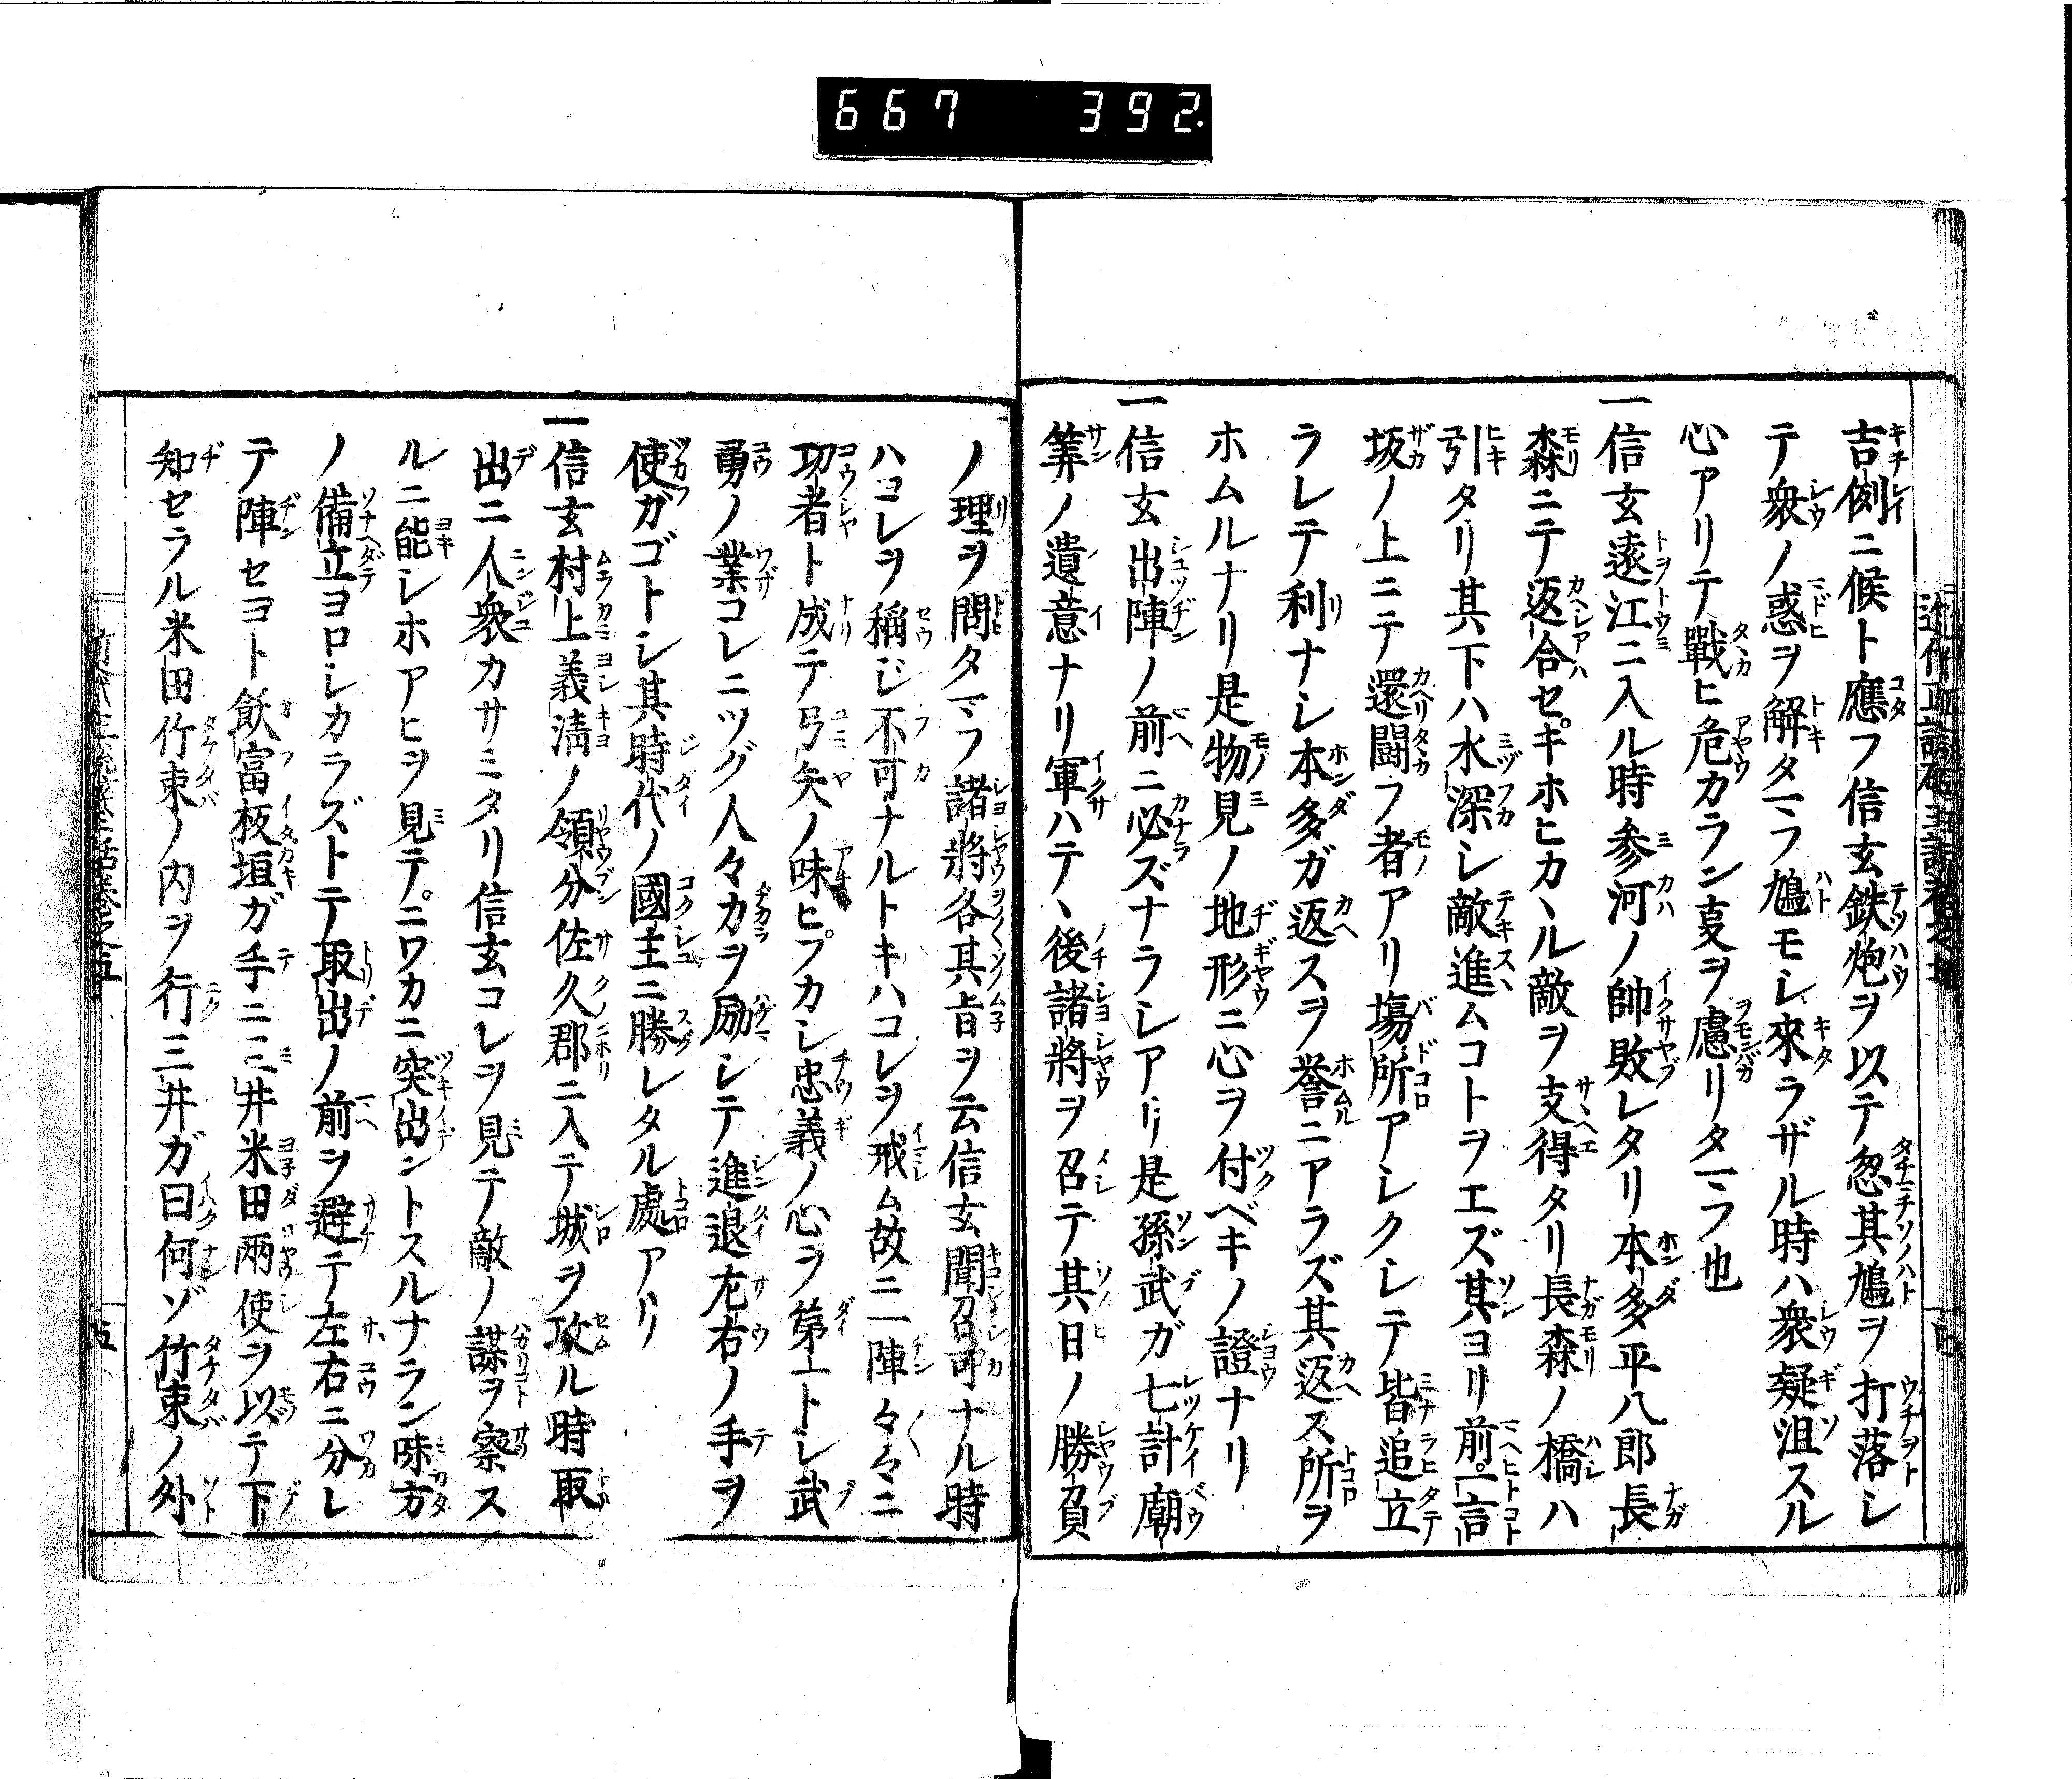 667 392.
吉例ニ候ト應フ信玄鉄炮ヲ以テ忽其鳩ヲ打落シ
テ衆ノ惑ヲ解タマフ鳩モシ來ラザル時ハ衆疑沮スル
心アリテ戰ヒ危カラン㕝ヲ慮リタマフ也
一信玄遠江ニ入ル時参河ノ帥敗レタリ本多平八郎長
森ニテ返合セキホヒカヽル敵ヲ支得タリ長森ノ橋ハ
引タリ其下ハ水深シ敵進ムコトヲエズ其ヨリ前一言
坂ノ上ニテ還闘フ者アリ塲所アシクシテ皆追立
ラレテ利ナシ本多ガ返スヲ誉ニアラズ其返ス所ヲ
ホムルナリ是物見ノ地形ニ心ヲ付ベキノ證ナリ
一信玄出陣ノ前ニ必ズナラシアリ是孫武ガ七計廟
筭ノ遺意ナリ軍ハテヽ後諸將ヲ召テ其日ノ勝負
ノ理ヲ問タマフ諸將各其旨ヲ云信玄聞召可ナル時
ハコレヲ稱シ不可ナルトキハコレヲ戒ム故ニ一陣々々ニ
功者ト成テ弓矢ノ味ヒフカシ忠義ノ心ヲ第一トシ武
勇ノ業コレニツグ人々カヲ励シテ進退左右ノ手ヲ
使ガゴトシ其時代ノ國主ニ勝レタル處アリ
一信玄村上義清ノ領分佐久郡ニ入テ城ヲ攻ル時取
出ニ人衆カサミタリ信玄コレヲ見テ敵ノ謀ヲ察ス
ルニ能シホアヒヲ見テニワカニ突出ントスルナラン味方
ノ備立ヨロシカラズトテ取出ノ前ヲ避テ左右ニ分レ
テ陣セヨト飫富板垣ガ手ニ三井米田兩使ヲ以テ下
知セラル米田竹束ノ内ヲ行三井ガ曰何ゾ竹束ノ外
五